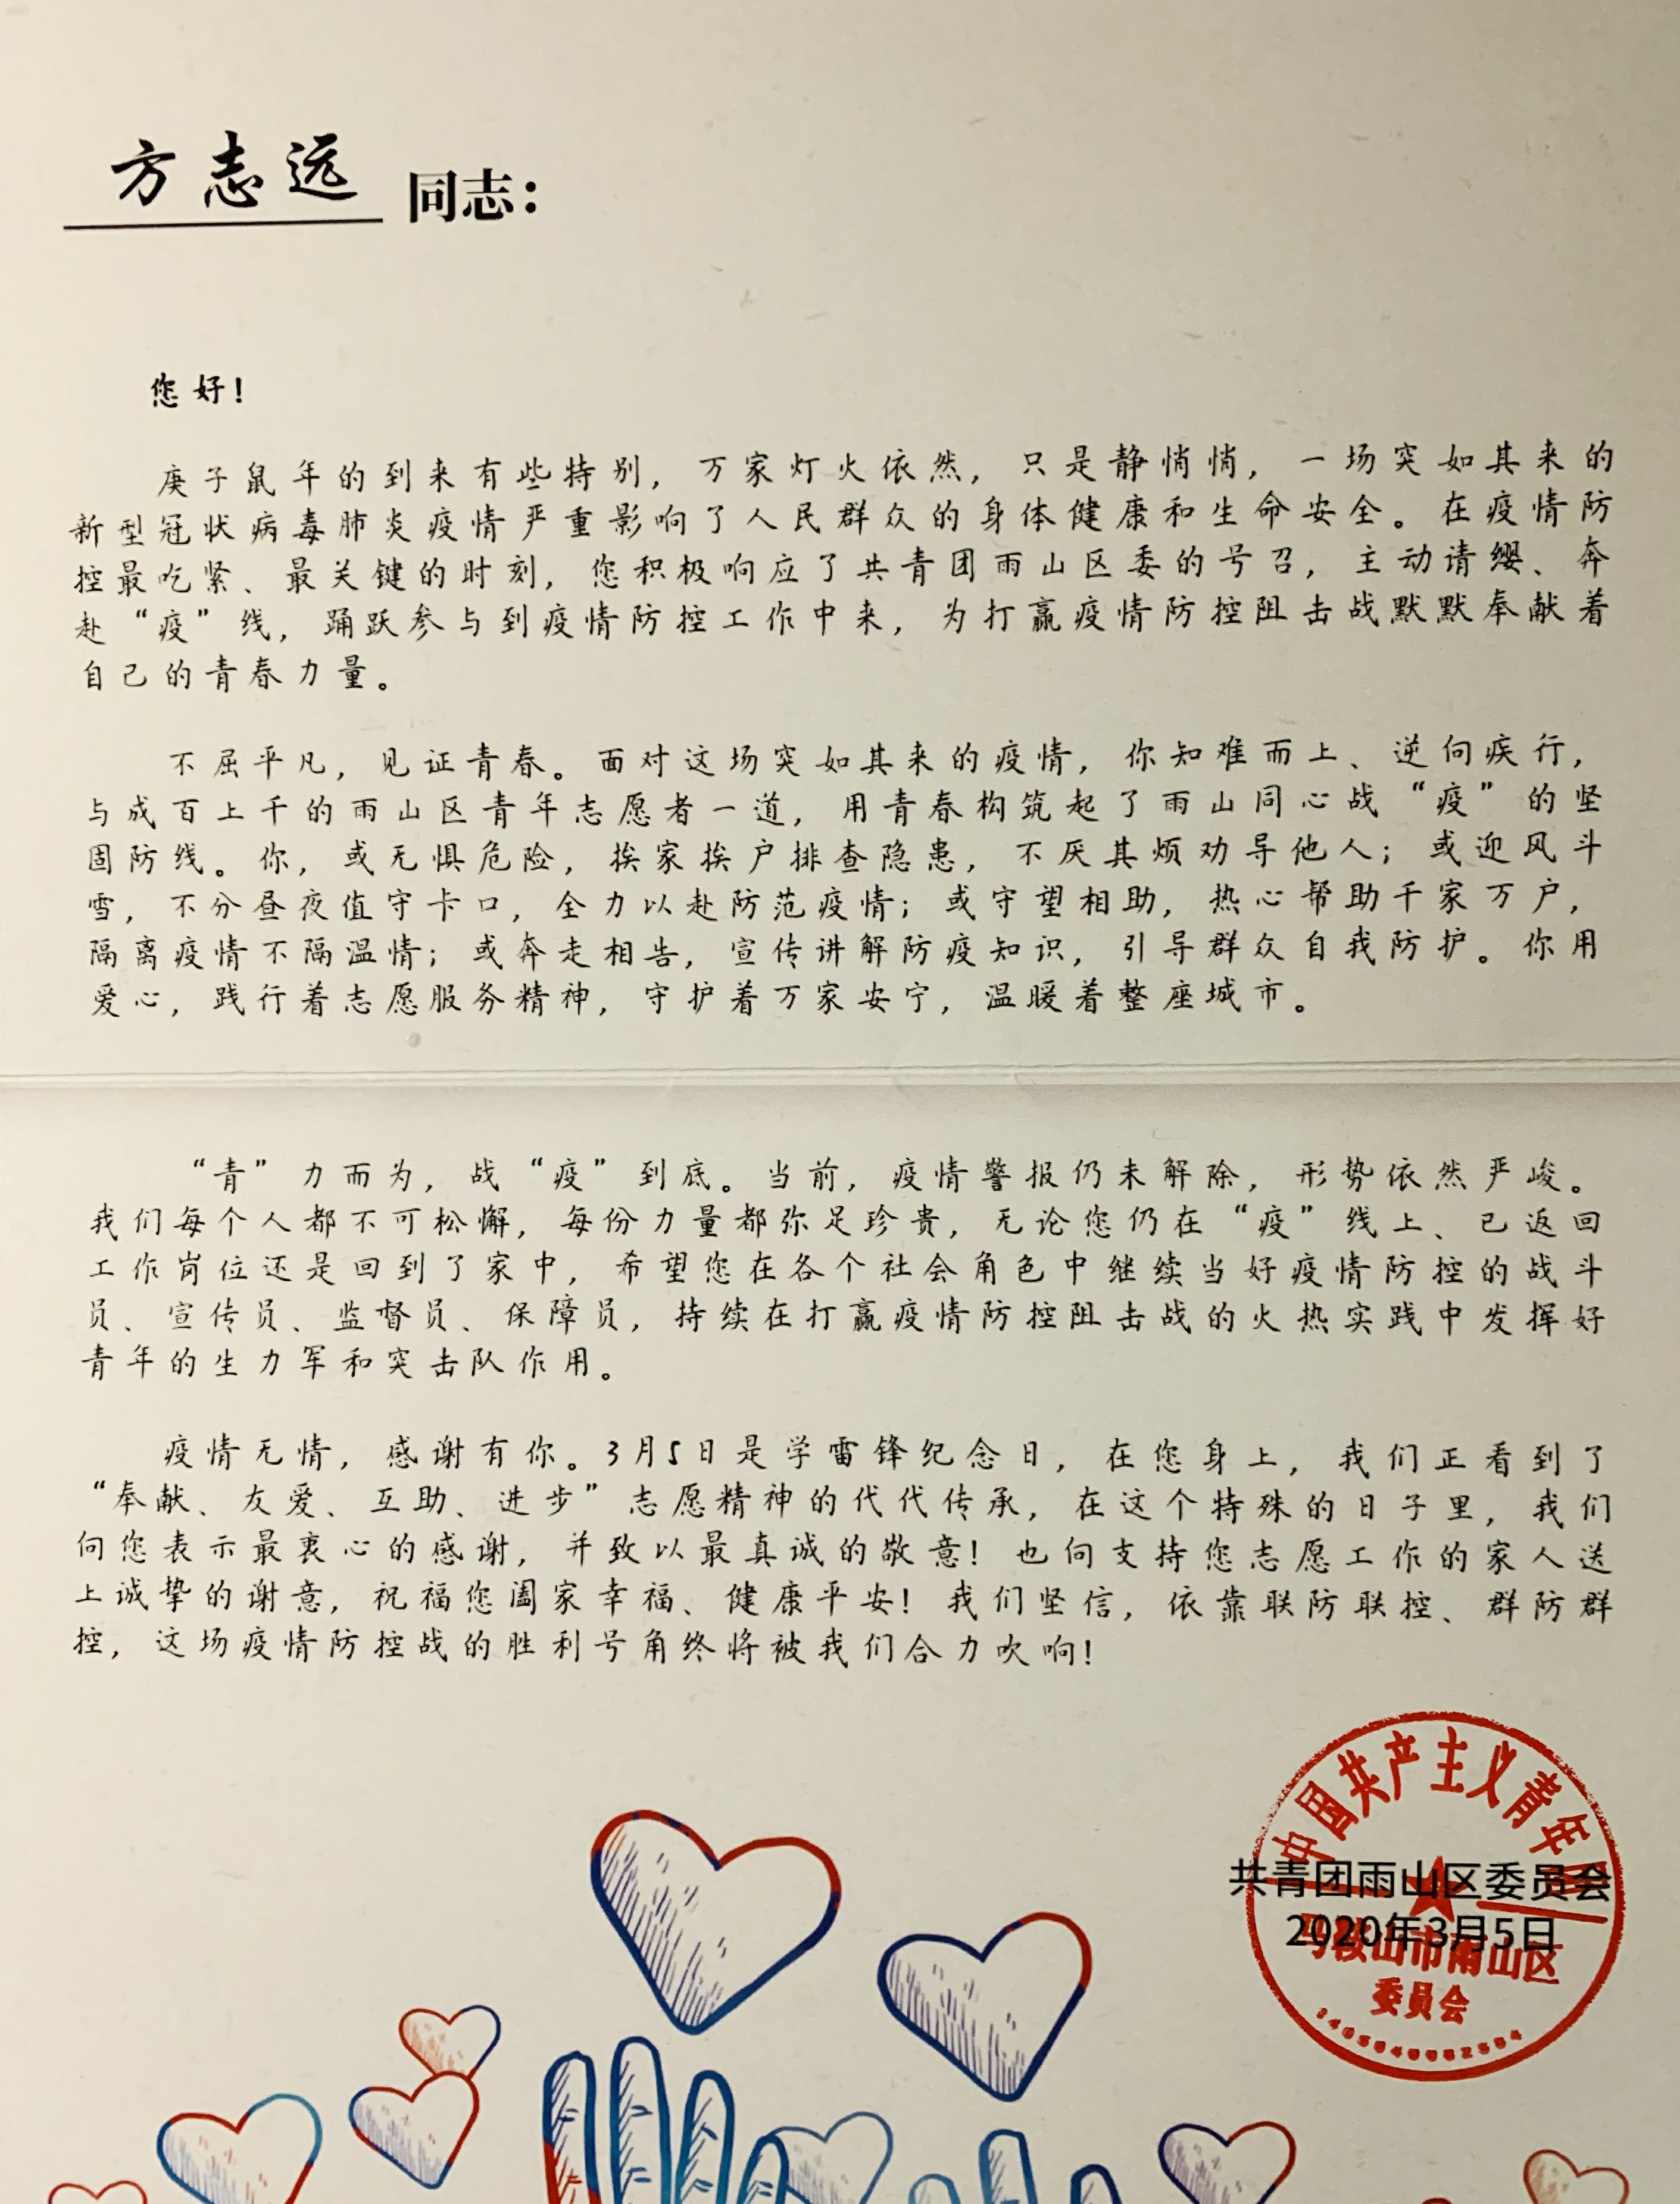 方志远 同志：
您好！
庚子鼠年的到来有些特别，万家灯火依然，只是静悄悄，一场突如其来的
新型冠状病毒肺炎疫情严重影响了人民群众的身体健康和生命安全。在疫情防
控最吃紧、最关键的时刻，您积极响应了共青团雨山区委的号召，主动请缨、奔
赴“疫”线，踊跃参与到疫情防控工作中来，为打赢疫情防控阻击战默默奉献着
自己的青春力量。
不屈平凡，见证青春。面对这场突如其来的疫情，你知难而上、逆向疾行，
与成百上千的雨山区青年志愿者一道，用青春构筑起了雨山同心战“疫”的坚
固防线。你，或无惧危险，挨家挨户排查隐患，不厌其烦劝导他人；或迎风斗
雪，不分昼夜值守卡口，全力以赴防范疫情；或守望相助，热心帮助千家万户，
隔离疫情不隔温情；或奔走相告，宣传讲解防疫知识，引导群众自我防护。你用
爱心，践行着志愿服务精神，守护着万家安宁，温暖着整座城市。
“青”力而为，战“疫”到底。当前，疫情警报仍未解除，形势依然严峻。
我们每个人都不可松懈，每份力量都弥足珍贵，无论您仍在“疫”线上、已返回
工作岗位还是回到了家中，希望您在各个社会角色中继续当好疫情防控的战斗
员、宣传员、监督员、保障员，持续在打赢疫情防控阻击战的火热实践中发挥好
青年的生力军和突击队作用。
疫情无情，感谢有你。3月5日是学雷锋纪念日，在您身上，我们正看到了
“奉献、友爱、互助、进步”志愿精神的代代传承，在这个特殊的日子里，我们
向您表示最衷心的感谢，并致以最真诚的敬意！也向支持您志愿工作的家人送
上诚挚的谢意，祝福您阖家幸福、健康平安！我们坚信，依靠联防联控、群防群
控，这场疫情防控战的胜利号角终将被我们合力吹响！
中国共产主义青年团
共青团雨山区委员会
2020年3月5日
马鞍山市雨山区
委员会